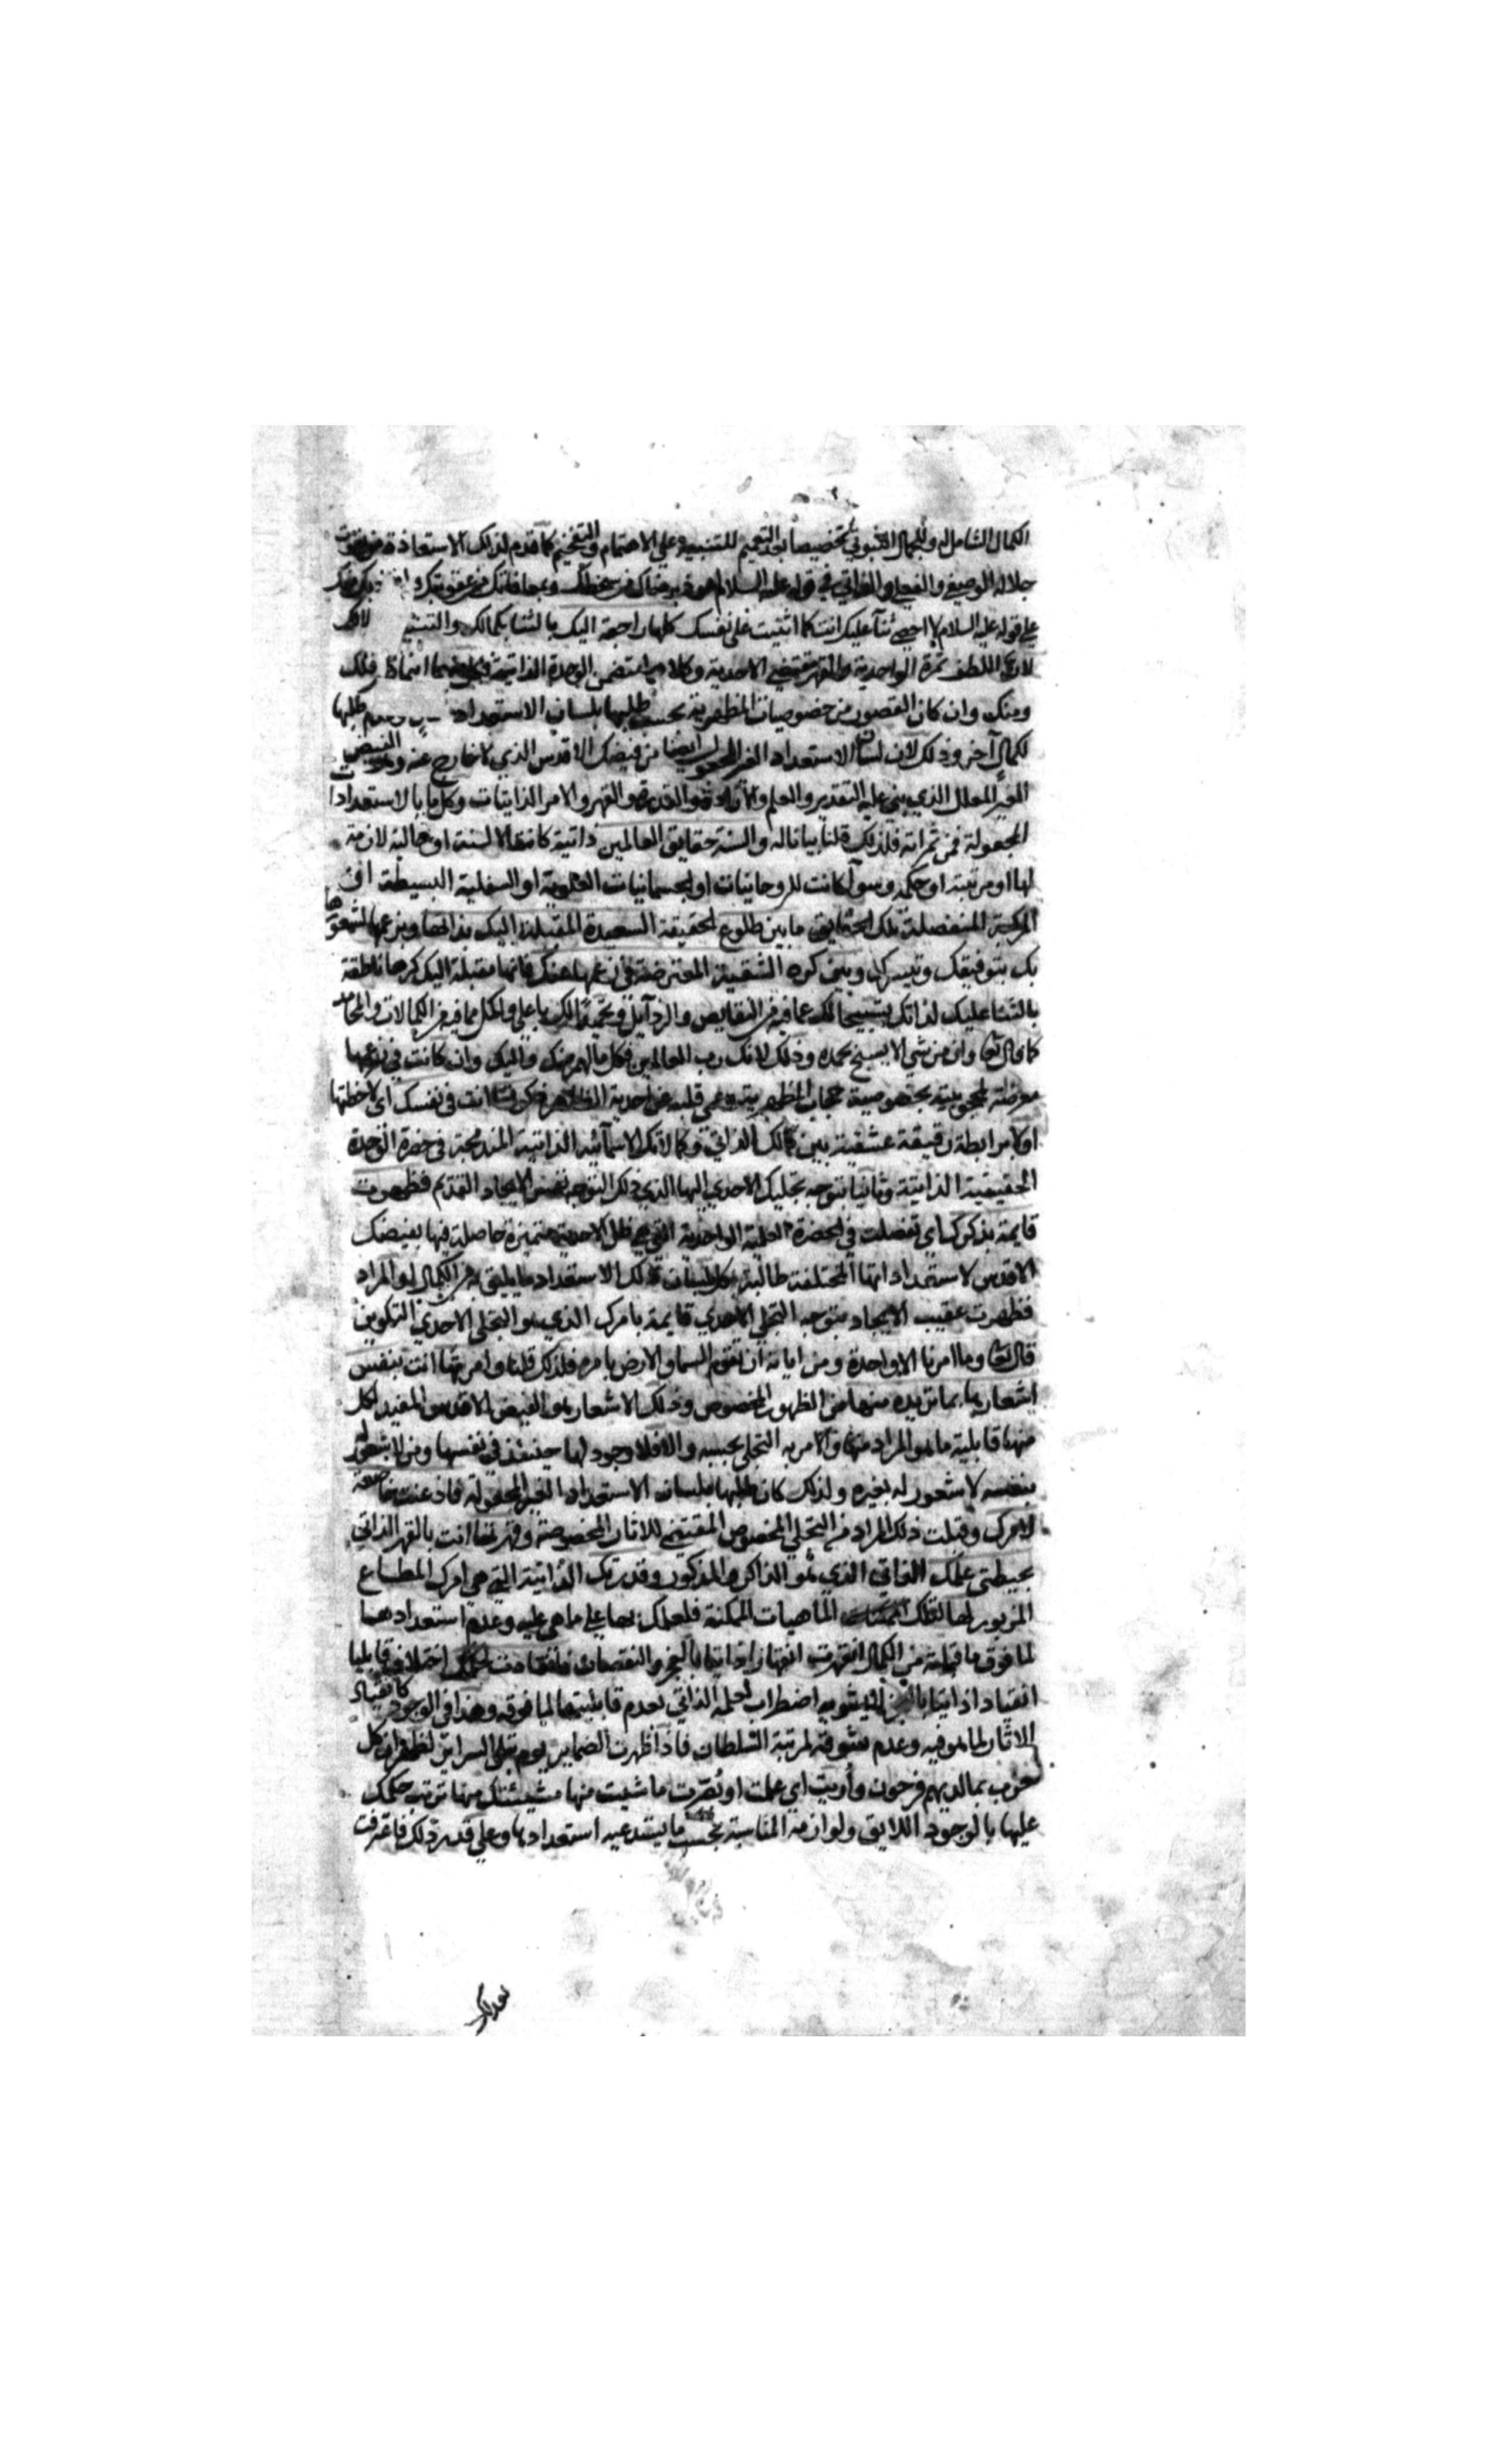 الكمال الشامل له وللجمال الثبوتي تخصيصا بعد التعميم للتنبيه على الاهتمام والتفخيم كما قدم لذلك الاستعاذة من نعوت
جلاله الوصفي والفعلي والذاتي في قوله عليه السلام اعوذ برضاك من سخطك وبمعافاتك من عقوبتك واعوذ بك منك
على قوله عليه السلام لا احصي ثنآ عليك انت كما اثنيت على نفسك كلها راجعة اليك بالثنا بكمالك والتنزيه
لان اللطف ثمرة الواحدية والقهر مقتضى الاحدية وكلاهما مقتضى الوحدة الذاتية فلك
ومنك وان كان القصور من خصوصيات المظهرية بحسب طلبها بلسان الاستعداد طلبها
لكمال آخر وذلك لان لسان الاستعداد الغير المجعول ايضا من فيضك الاقدس الذي لا خارج عنه وهو الفيض
الغير المعلل الذي بني عليه التقدير والعلم والارادة والقدرة والقهر والامر الذاتيات وكل ما بالاستعدادات
المجعولة فمن ثمراته فلذلك قلنا بيانا له والسنة حقايق العالمين ذاتية كانت الالسنة او حالية لازمة
لها او مرتبة او حكمة وسوآ كانت للروحانيات او الجسمانيات العلوية او السفلية البسيطة او
المركبة المنفصلة تلك الحقايق ما بين طلوع الحقيقة السعيدة المقبلة اليك بذاتها وبزعمها لشعورها
بك بتوفيقك وتيسيرك وبين كره الشقية المعترضة في زعمها عنك فانها مقبلة اليك كرها ناطقة
بالثنا عليك لذاتك بتسبيحها لك عما فيه من النقايص والرذآيل وتحميدها لك باعلى واكمل مما فيه من الكمالات والمحامد
كما قال تعا وان من شي الا يسبح بحمده وذلك لانك رب العالمين فكل ما لهم منك واليك وان كانت في زعمها
معرضة لمحجوبيته بخصوصية حجاب المظهرية وعمي قلبه عن احدية الظاهر فكونتها انت في نفسك اي لاحظتها
اولا برابطة رقيقة عشقية بين كمالك الذاتي وكمالاتك الاسمآئية الذاتية المندمجة في حضرة الوحدة
الحقيقية الذاتية وثانيا بتوجه تجليك الاحدي اليها الذي ذلك التوجه نفس الايجاد القديم فظهرت
قايمة بذكرك اي تفصلت في الحضرة العلمية الواحدية التي هي ظل الاحدية متميزة حاصلة فيها بفيضك
الاقدس لاستعداداتها المختلفة طالبة كل بلسان ذلك الاستعداد ما يليق به من الكمال او المراد
فظهرت عقيب الايجاد بتوجه التجلي الاحدي قايمة بامرك الذي هو التجلي الاحدي التكويني
قال تعا وما امرنا الا واحدة ومن اياته ان تقوم السما والارض بامره فلذلك قلنا وامرتها انت بنفس
اشعارها بما تريده منها من الظهور المخصوص وذلك الاشعار هو الفيض الاقدس المفيد لكل
منها قابلية ما هو المراد منها والامر به التجلي بحسبه والا فلا وجود لها حينئذ في نفسها ومن لا شعور له
بنفسه لا شعور له بغيره ولذلك كان طلبها بلسان الاستعداد الغير المجعولة فاذعنت خاضعة
لامرك وقبلت ذلك المراد من التجلي المخصوص المقتضي للاثار المخصوصة وقهرتها انت بالقهر الذاتي
بحيطتي علمك الذاتي الذي هو الذاكر والمذكور وقدرتك الذاتية التي هي امرك المطاع
المزبور لها لتلك الماهيات الممكنة فلعلمك بها على ما هي عليه وعدم استعدادها
لما فوق ما قبلته من الكمال انقهرت انقهارا ذاتيا بالعجز والنقصان فانقادت لحكمك قابليا
انقيادا ذاتيا لا يشوبه اضطراب لعلمه الذاتي بعدم قابليتها لما فوقه وهذا في الوجود كانقياد
الاثار لما هو فيه وعدم تشوقه لمرتبة السلطان فاذا ظهرت الضماير يوم تبلى السراير لظهر ان كل
حزب بما لديهم فرحون وأوتيت اي علمت او بُصّرت ما شيت منها مشيئتك منها ترتب حكمك
عليها بالوجود اللايق ولوازمه المناسبة بحسب ما يستدعيه استعدادها وعلى قدر ذلك فاعترفت